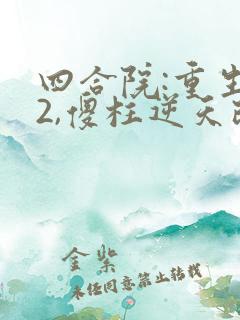 四合院:重生
2,傻柱逆天改
金紫
未经同意禁止转载